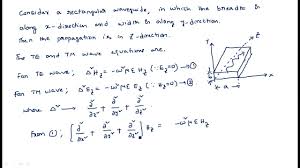 Consider a rectangular waveguide, in which the breadth is
along x-direction and width is along y-direction.
Then the propagation is in z-direction.
The TE and TM wave equations are.
For TE wave; ∇² Hz = -ω²με Hz (∵ Ez=0) → ①
For TM wave; ∇² Ez = -ω²με Ez (∵ Hz=0) → ②
where ∇² → ∂²/∂x² + ∂²/∂y² + ∂²/∂z²
From ①; [∂²/∂x² + ∂²/∂y² + ∂²/∂z²] Hz = -ω²με Hz